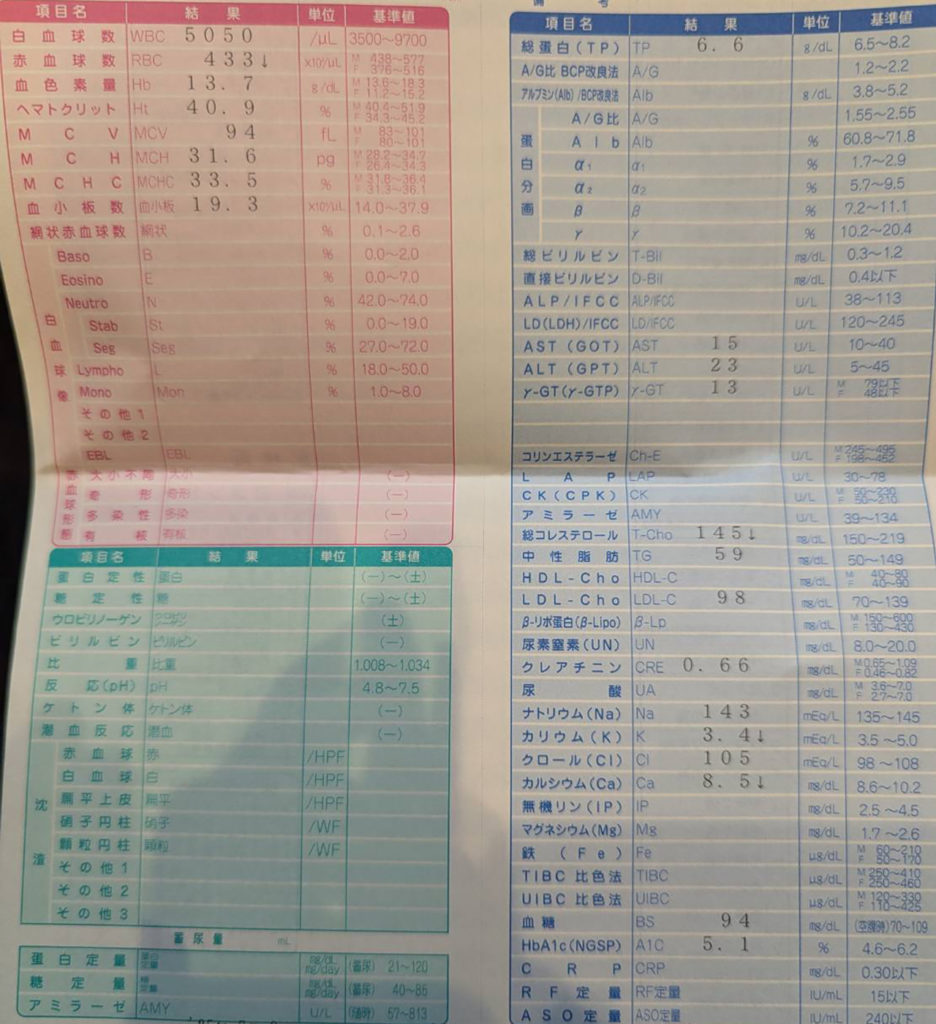 項目名 結果 単位 基準値
白血球数 WBC 5050 /μL 3500〜9700
赤血球数 RBC 433↓ ×10⁴/μL M 438〜577 F 376〜516
血色素量 Hb 13.7 g/dL M 13.6〜18.3 F 11.2〜15.2
ヘマトクリット Ht 40.9 % M 40.4〜51.9 F 34.3〜45.2
MCV MCV 94 fL M 83〜101 F 80〜101
MCH MCH 31.6 pg M 28.2〜34.7 F 26.4〜34.3
MCHC MCHC 33.5 % M 31.8〜36.4 F 31.3〜36.1
血小板数 血小板 19.3 ×10⁴/μL 14.0〜37.9
網状赤血球数 網状 % 0.1〜2.6
白血球像
Baso B % 0.0〜2.0
Eosino E % 0.0〜7.0
Neutro N % 42.0〜74.0
Stab St % 0.0〜19.0
Seg Seg % 27.0〜72.0
Lympho L % 18.0〜50.0
Mono Mon % 1.0〜8.0
その他1
その他2
EBL EBL
赤血球形態
大小不同 大小 (−)
奇形 奇形 (−)
多染性 多染 (−)
有核 有核 (−)
項目名 結果 単位 基準値
蛋白定性 蛋白 (−)〜(±)
糖定性 糖 (−)〜(±)
ウロビリノーゲン (±)
ビリルビン ビリルビン (−)
比重 比重 1.008〜1.034
反応(pH) pH 4.8〜7.5
ケトン体 ケトン体 (−)
潜血反応 潜血 (−)
沈渣
赤血球 赤 /HPF
白血球 白 /HPF
扁平上皮 扁平 /HPF
硝子円柱 硝子 /WF
顆粒円柱 顆粒 /WF
その他1
その他2
その他3
蓄尿量 mL
蛋白定量 蛋白定量 mg/dL mg/day (蓄尿) 21〜120
糖定量 糖定量 mg/dL mg/day (蓄尿) 40〜85
アミラーゼ AMY U/L (随時) 67〜813
備考
項目名 結果 単位 基準値
総蛋白(TP) TP 6.6 g/dL 6.5〜8.2
A/G比 BCP改良法 A/G 1.2〜2.2
アルブミン(Alb)/BCP改良法 Alb g/dL 3.8〜5.2
蛋白分画
A/G比 A/G 1.55〜2.55
Alb Alb % 60.8〜71.8
α₁ α₁ % 1.7〜2.9
α₂ α₂ % 5.7〜9.5
β β % 7.2〜11.1
γ γ % 10.2〜20.4
総ビリルビン T-Bil mg/dL 0.3〜1.2
直接ビリルビン D-Bil mg/dL 0.4以下
ALP/IFCC ALP/IFCC U/L 38〜113
LD(LDH)/IFCC LD/IFCC U/L 120〜245
AST(GOT) AST 15 U/L 10〜40
ALT(GPT) ALT 23 U/L 5〜45
γ-GT(γ-GTP) γ-GT 13 U/L M 79以下 F 48以下
コリンエステラーゼ Ch-E U/L M 245〜495 F 198〜452
LAP LAP U/L 30〜78
CK(CPK) CK U/L M 50〜230 F 50〜210
アミラーゼ AMY U/L 39〜134
総コレステロール T-Cho 145↓ mg/dL 150〜219
中性脂肪 TG 59 mg/dL 50〜149
HDL-Cho HDL-C mg/dL M 40〜80 F 40〜90
LDL-Cho LDL-C 98 mg/dL 70〜139
β-リポ蛋白(β-Lipo) β-Lp mg/dL M 150〜600 F 130〜430
尿素窒素(UN) UN mg/dL 8.0〜20.0
クレアチニン CRE 0.66 mg/dL M 0.65〜1.09 F 0.46〜0.82
尿酸 UA mg/dL M 3.6〜7.0 F 2.7〜7.0
ナトリウム(Na) Na 143 mEq/L 135〜145
カリウム(K) K 3.4↓ mEq/L 3.5〜5.0
クロール(Cl) Cl 105 mEq/L 98〜108
カルシウム(Ca) Ca 8.5↓ mg/dL 8.6〜10.2
無機リン(IP) IP mg/dL 2.5〜4.5
マグネシウム(Mg) Mg mg/dL 1.7〜2.6
鉄(Fe) Fe μg/dL M 60〜210 F 50〜170
TIBC 比色法 TIBC μg/dL M 250〜410 F 250〜460
UIBC 比色法 UIBC μg/dL M 120〜330 F 110〜425
血糖 BS 94 mg/dL (空腹時)70〜109
HbA1c(NGSP) A1C 5.1 % 4.6〜6.2
CRP CRP mg/dL 0.30以下
RF定量 RF定量 IU/mL 15以下
ASO定量 ASO定量 IU/mL 240以下